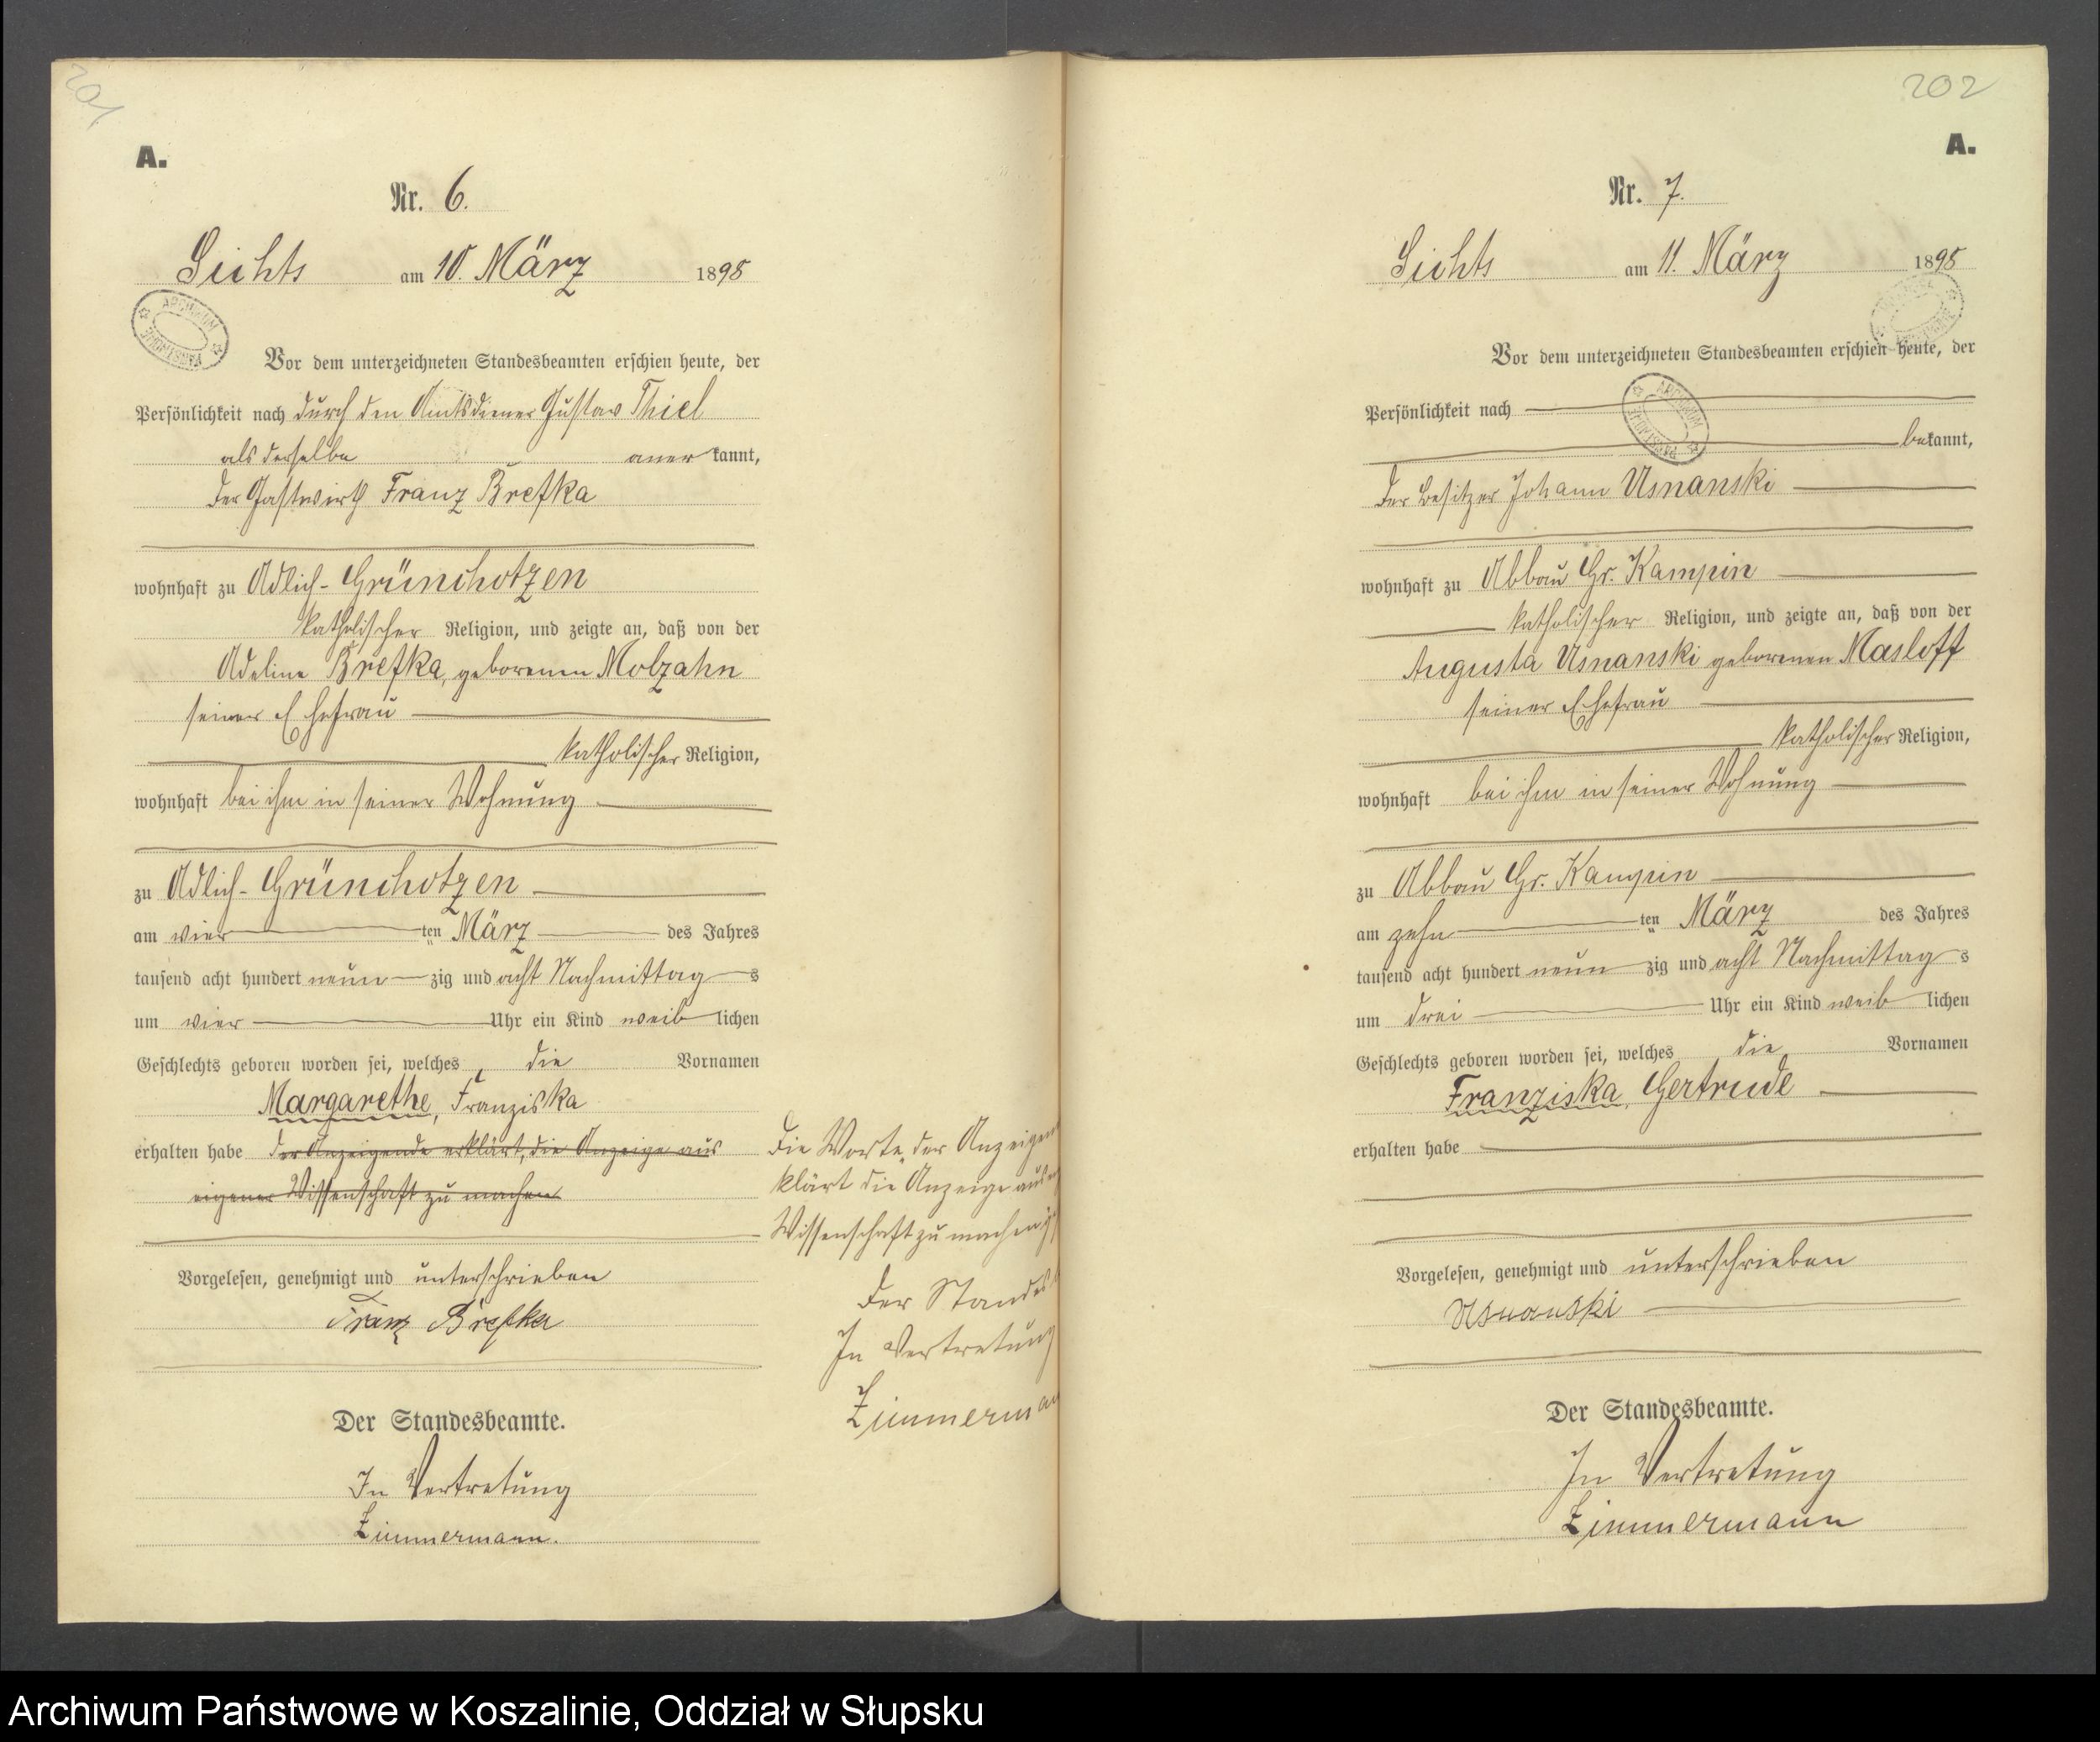 201
A.
Nr. 6.
Lichts am 10. März 1898
ARCHIWUM PAŃSTWOWE
Vor dem unterzeichneten Standesbeamten erschien heute, der
Persönlichkeit nach durch den Amtsdiener Gustav Thiel
als derselbe anerkannt,
der Gastwirth Franz Brefka
wohnhaft zu Adlich-Grünchotzen
katholischer Religion, und zeigte an, daß von der
Adeline Brefka, geborenen Molzahn
seiner Ehefrau
katholischer Religion,
wohnhaft bei ihm in seiner Wohnung
zu Adlich-Grünchotzen
am vierten März des Jahres
tausend acht hundert neunzig und acht Nachmittags
um vier Uhr ein Kind weiblichen
Geschlechts geboren worden sei, welches die Vornamen
Margarethe, Franziska
erhalten habe der Anzeigende erklärt, die Anzeige aus
eigener Wissenschaft zu machen
Die Worte „der Anzeigen
klärt die Anzeige aus
Wissenschaft zu machen
Der Standes
In Vertretung
Zimmerman
Vorgelesen, genehmigt und unterschrieben
Franz Brefka
Der Standesbeamte.
In Vertretung
Zimmermann.
202
A.
Nr. 7.
Lichts am 11. März 1898
Vor dem unterzeichneten Standesbeamten erschien heute, der
ARCHIWUM PAŃSTWOWE
Persönlichkeit nach
bekannt,
der Besitzer Johann Usnanski
wohnhaft zu Abbau Gr. Kampin
katholischer Religion, und zeigte an, daß von der
Augusta Usnanski geborenen Masloff
seiner Ehefrau
katholischer Religion,
wohnhaft bei ihm in seiner Wohnung
zu Abbau Gr. Kampin
am zehnten März des Jahres
tausend acht hundert neunzig und acht Nachmittags
um drei Uhr ein Kind weiblichen
Geschlechts geboren worden sei, welches die Vornamen
Franziska, Gertrude
erhalten habe
Vorgelesen, genehmigt und unterschrieben
Usnanski
Der Standesbeamte.
In Vertretung
Zimmermann
Archiwum Państwowe w Koszalinie, Oddział w Słupsku